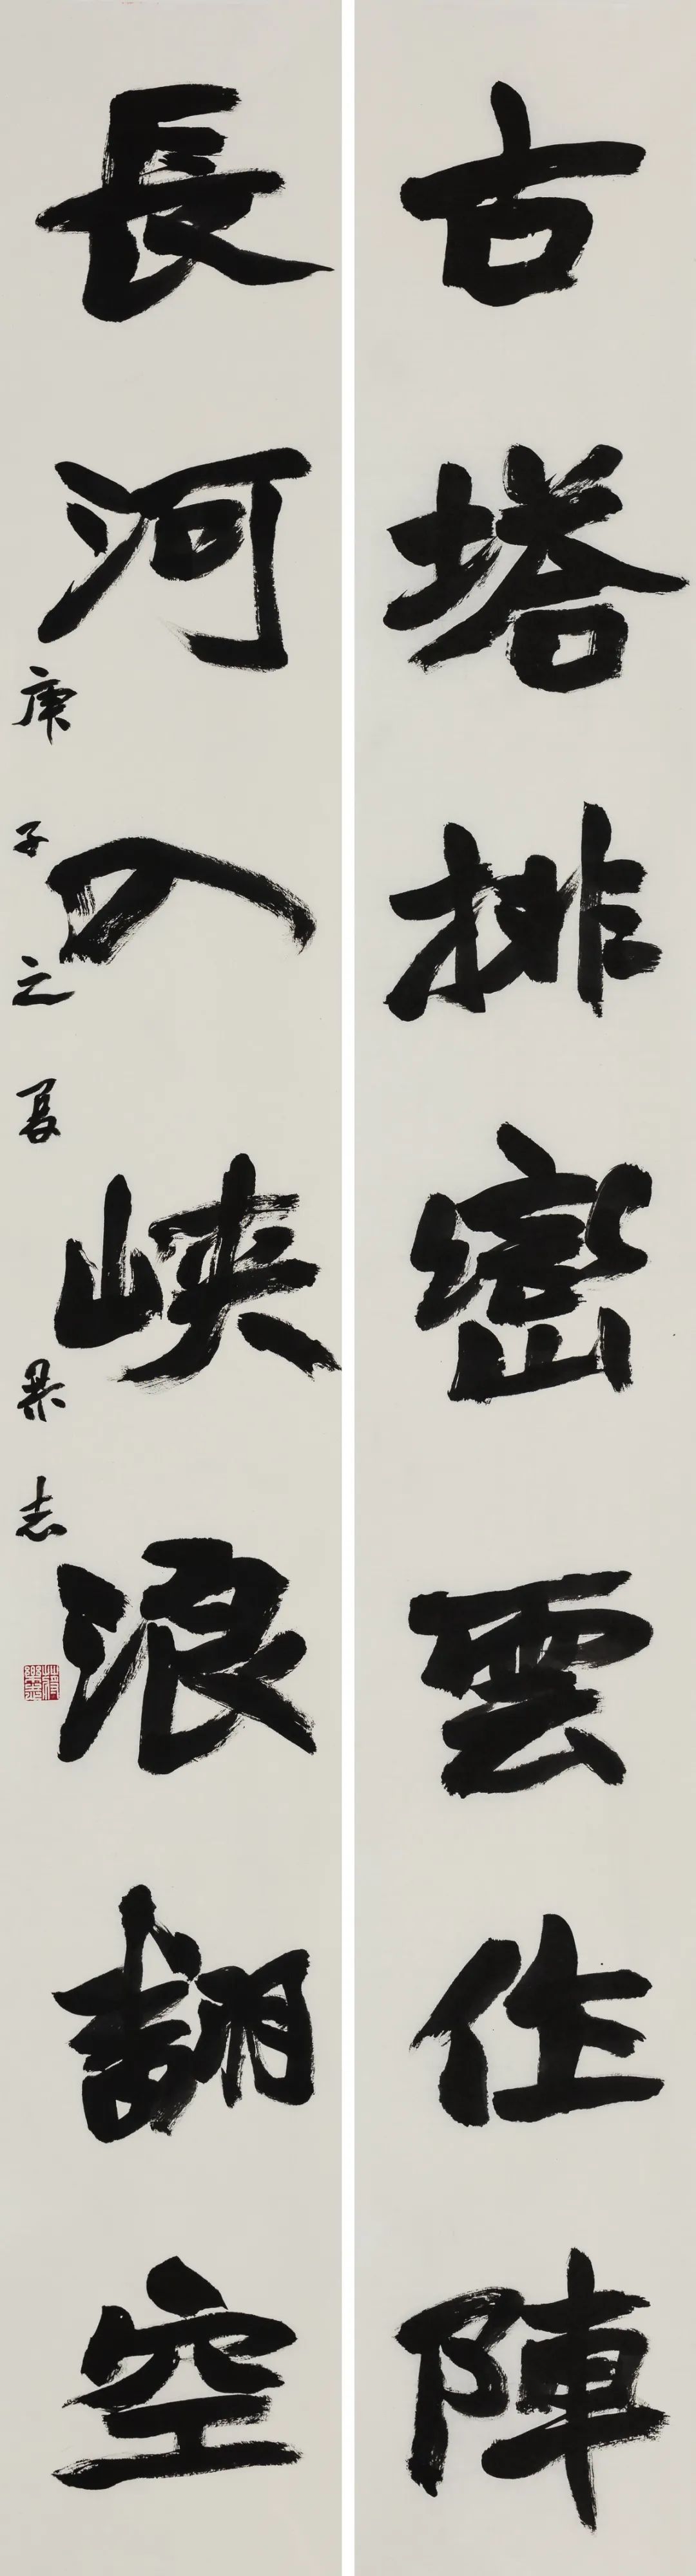 古塔排巒雲作陣
長河入峽浪翻空
庚子之夏 樂志